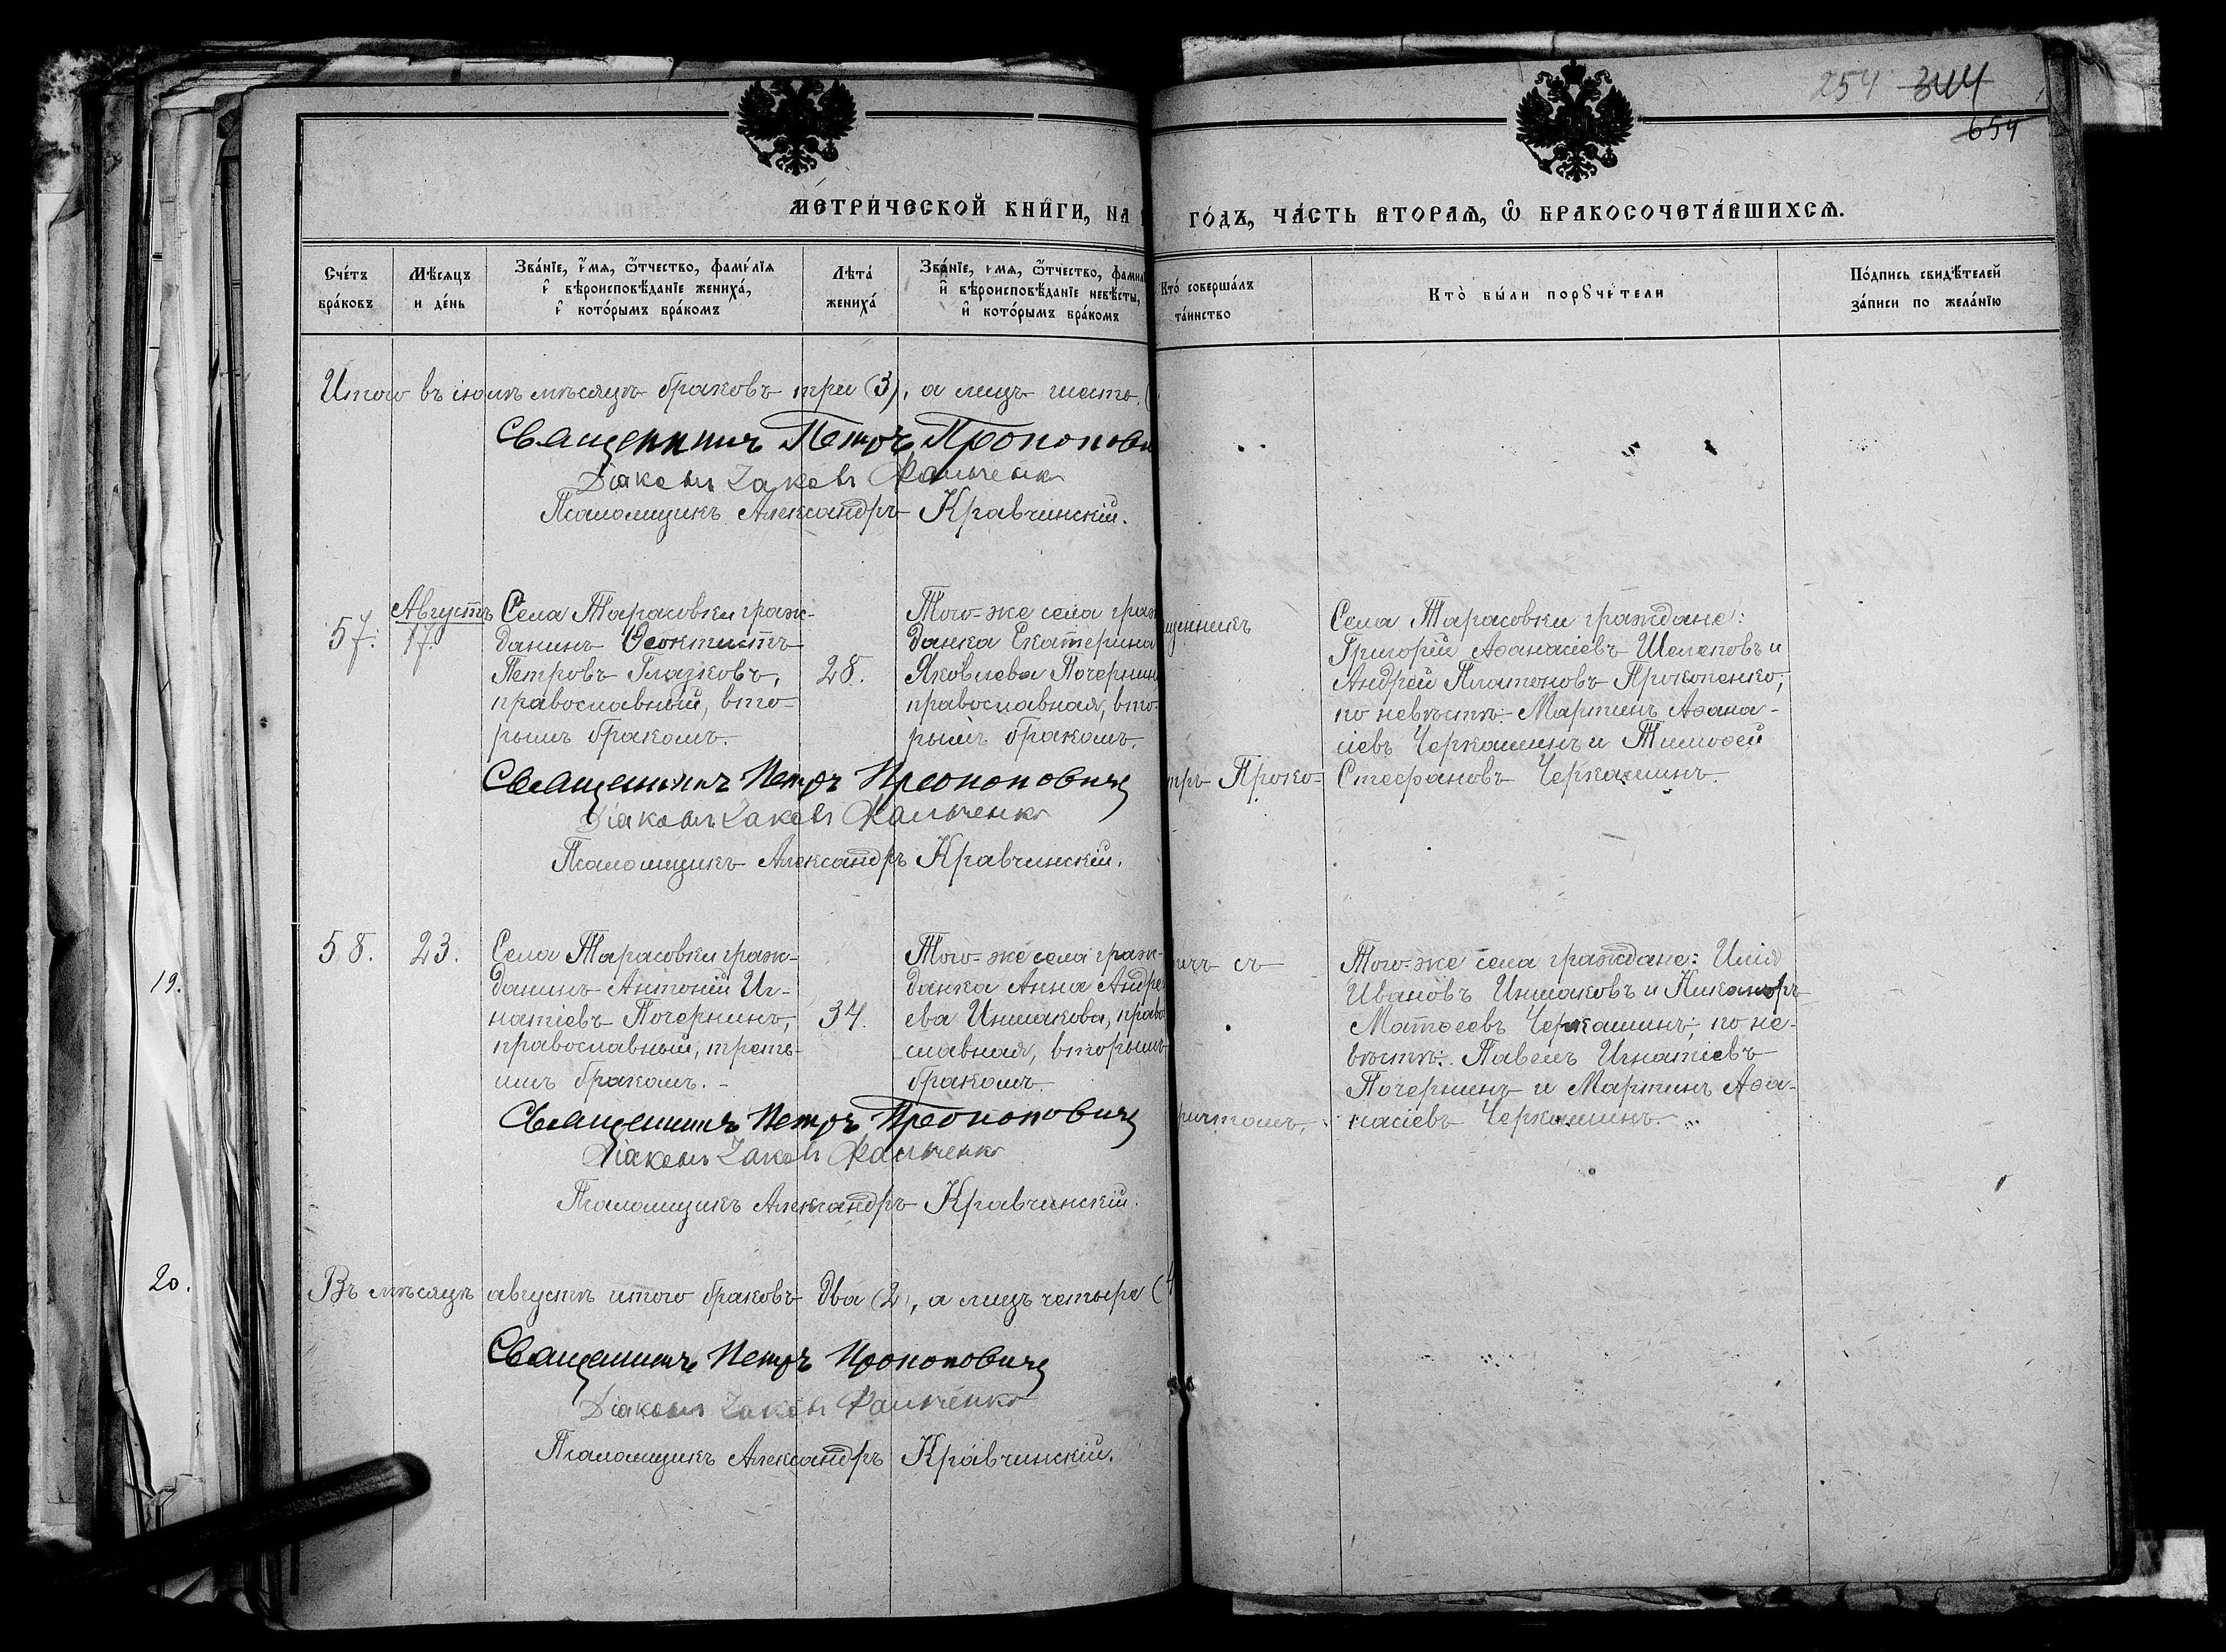 254 344
654
МЕТРИ́ЧЕСКОЙ КНИ́ГИ, НА
ГО́ДЪ, ЧА́СТЬ ВТОРАѦ, Ѿ БРАКОСОЧЕТА́ВШИХСѦ.
Сче́тъ бра́ковъ
Мѣ́сяцъ и де́нь
Зва́нїе, и́мѧ, ѻ́тчество, фами́лїѧ
и҆ вѣроисповѣ́данїе жениха́,
и҆ кото́рымъ бра́комъ
Лѣта́ жениха́
Зва́нїе, и́мѧ, ѻ́тчество, фами́л
и҆ вѣроисповѣ́данїе невѣ́сты,
и҆ кото́рымъ бра́комъ
Кто́ соверша́лъ
та́инство
Кто̀ бы́ли порꙋчи́тели
По́дпись свидѣ́телей
за́писи по жела́нїю
Итого въ іюлѣ мѣсяцѣ браковъ три (3), а лицъ шесть. (
Священникъ Петръ Прокопови
Діаконъ Іаковъ Фальченко
Псаломщикъ Александръ Кравчинскій.
57.
Августъ
17.
Села Тарасовки граж-
данинъ Ѳеоктистъ
Петровъ Глазковъ,
православный, вто-
рымъ бракомъ.
28.
Того-же села граж
данка Екатерина
Яковлева Почернин
православная, вто-
рымъ бракомъ.
щенникъ
тръ Проко-
Села Тарасовки граждане:
Григорій Аѳанасіевъ Шелеповъ и
Андрей Платоновъ Прокопенко;
по невѣстѣ: Мартинъ Аѳана-
сіевъ Черкашинъ и Тимоѳей
Стефановъ Черкашинъ.
Священникъ Петръ Прокоповичъ
Діаконъ Іаковъ Фальченко
Псаломщикъ Александръ Кравчинскій.
58.
23.
Села Тарасовки граж-
данинъ Антоній Иг-
натіевъ Почернинъ,
православный, треть-
имъ бракомъ. -
34.
Того-же села граж-
данка Анна Андре
ева Иншакова, право
славная, вторымъ
бракомъ.
ичъ съ
ричтомъ.
Того-же села граждане: Илія
Ивановъ Иншаковъ и Никаноръ
Матѳеевъ Черкашинъ; по не-
вѣстѣ: Павелъ Игнатіевъ
Почернинъ и Мартинъ Аѳа-
насіевъ Черкашинъ.
Священникъ Петръ Прокоповичъ
Діаконъ Іаковъ Фальченко
Псаломщикъ Александръ Кравчинскій.
19.
20.
Въ мѣсяцѣ августѣ итого браковъ два (2), а лицъ четыре (4
Священникъ Петръ Прокоповичъ
Діаконъ Іаковъ Фальченко
Псаломщикъ Александръ Кравчинскій.